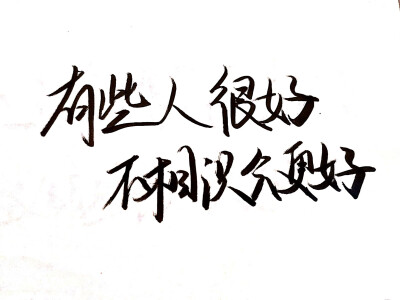 有些人很好
不相识会更好